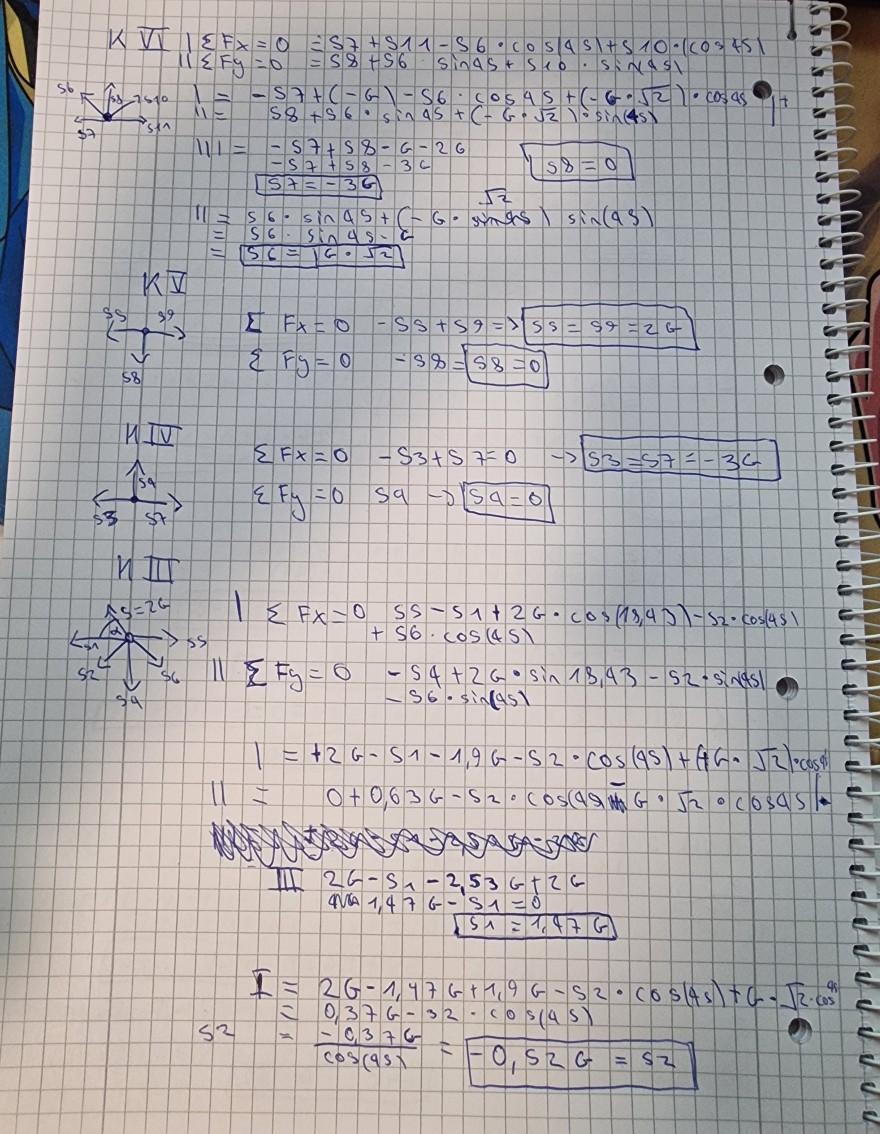 K VI | ΣFx=0 = S7+S11-S6·cos(45)+S10·(cos45)
|| ΣFy=0 = S8+S6·sin45+S10·sin(45)
S6 S8 S10
S7 S11
| = -S7+(-G)-S6·cos45+(-G·√2)·cos45
|| = S8+S6·sin45+(-G·√2)·sin(45)
||| = -S7+S8-G-2G
-S7+S8-3G
S8=0
S7=-3G
√2
|| = S6·sin45+(-G·sin45) sin(45)
= S6·sin45-G
= S6=G·√2
K V
S5 S9
S8
Σ Fx=0 -S5+S9=> S5=S9=2G
Σ Fy=0 -S8= S8=0
K IV
S4
S3 S7
Σ Fx=0 -S3+S7=0 -> S3=S7=-3G
Σ Fy=0 S4 -> S4=0
K III
S=2G
α
S1 S5
S2 S6
S4
| Σ Fx=0 S5-S1+2G·cos(18,43)-S2·cos(45)
+S6·cos(45)
|| Σ Fy=0 -S4+2G·sin18,43-S2·sin(45)
-S6·sin(45)
| = +2G-S1-1,9G-S2·cos(45)+(+G·√2)·cos45
|| = 0+0,63G-S2·cos(45)-G·√2·cos45
III 2G-S1-2,53G+2G
1,47G-S1=0
S1=1,47G
I = 2G-1,47G+1,9G-S2·cos(45)+G·√2·cos45
= 0,37G-S2·cos(45)
S2 = -0,37G
cos(45) = -0,52G=S2